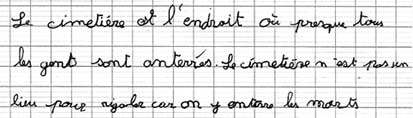 Le cimetière est l'endroit où presque tous
les gents sont anterrés. Le cimetière n'est pas un
lieu pour rigoler car on y enterre les morts